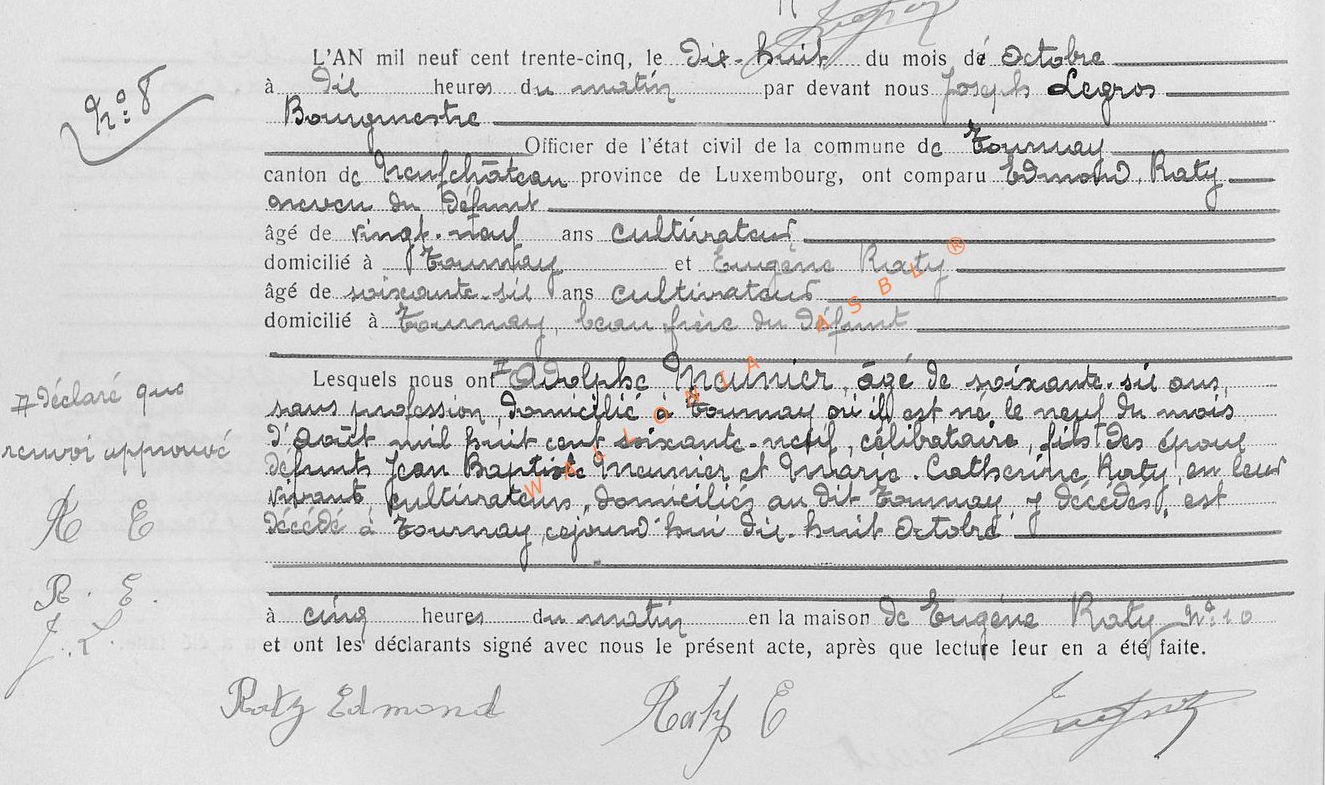 L'AN mil neuf cent trente-cinq, le dix-huit du mois de Octobre
N°: 8
à dix heures du matin par devant nous Joseph Legros
Bourgmestre
Officier de l'état civil de la commune de Tournay
canton de Neufchâteau province de Luxembourg, ont comparu Edmond Raty
neveu du défunt
âgé de vingt-neuf ans cultivateur
domicilié à Tournay et Eugène Raty
âgé de soixante-six ans cultivateur
domicilié à Tournay, beau frère du défunt
Lesquels nous ont Adolphe Meunier, âgé de soixante-six ans,
sans profession, domicilié à Tournay où il est né le neuf du mois
d'août mil huit cent soixante-neuf, célibataire, fils des époux
défunts Jean Baptiste Meunier et Marie Catherine Raty, en leur
vivant cultivateurs, domiciliés au dit Tournay y décédés, est
décédé à Tournay, cejourd'hui dix-huit Octobre
déclaré que
renvoi approuvé
R E
R. E.
J. L.
à cinq heures du matin en la maison de Eugène Raty N°: 10
et ont les déclarants signé avec nous le présent acte, après que lecture leur en a été faite.
Raty Edmond Raty E
WALLONIA ASBL ®